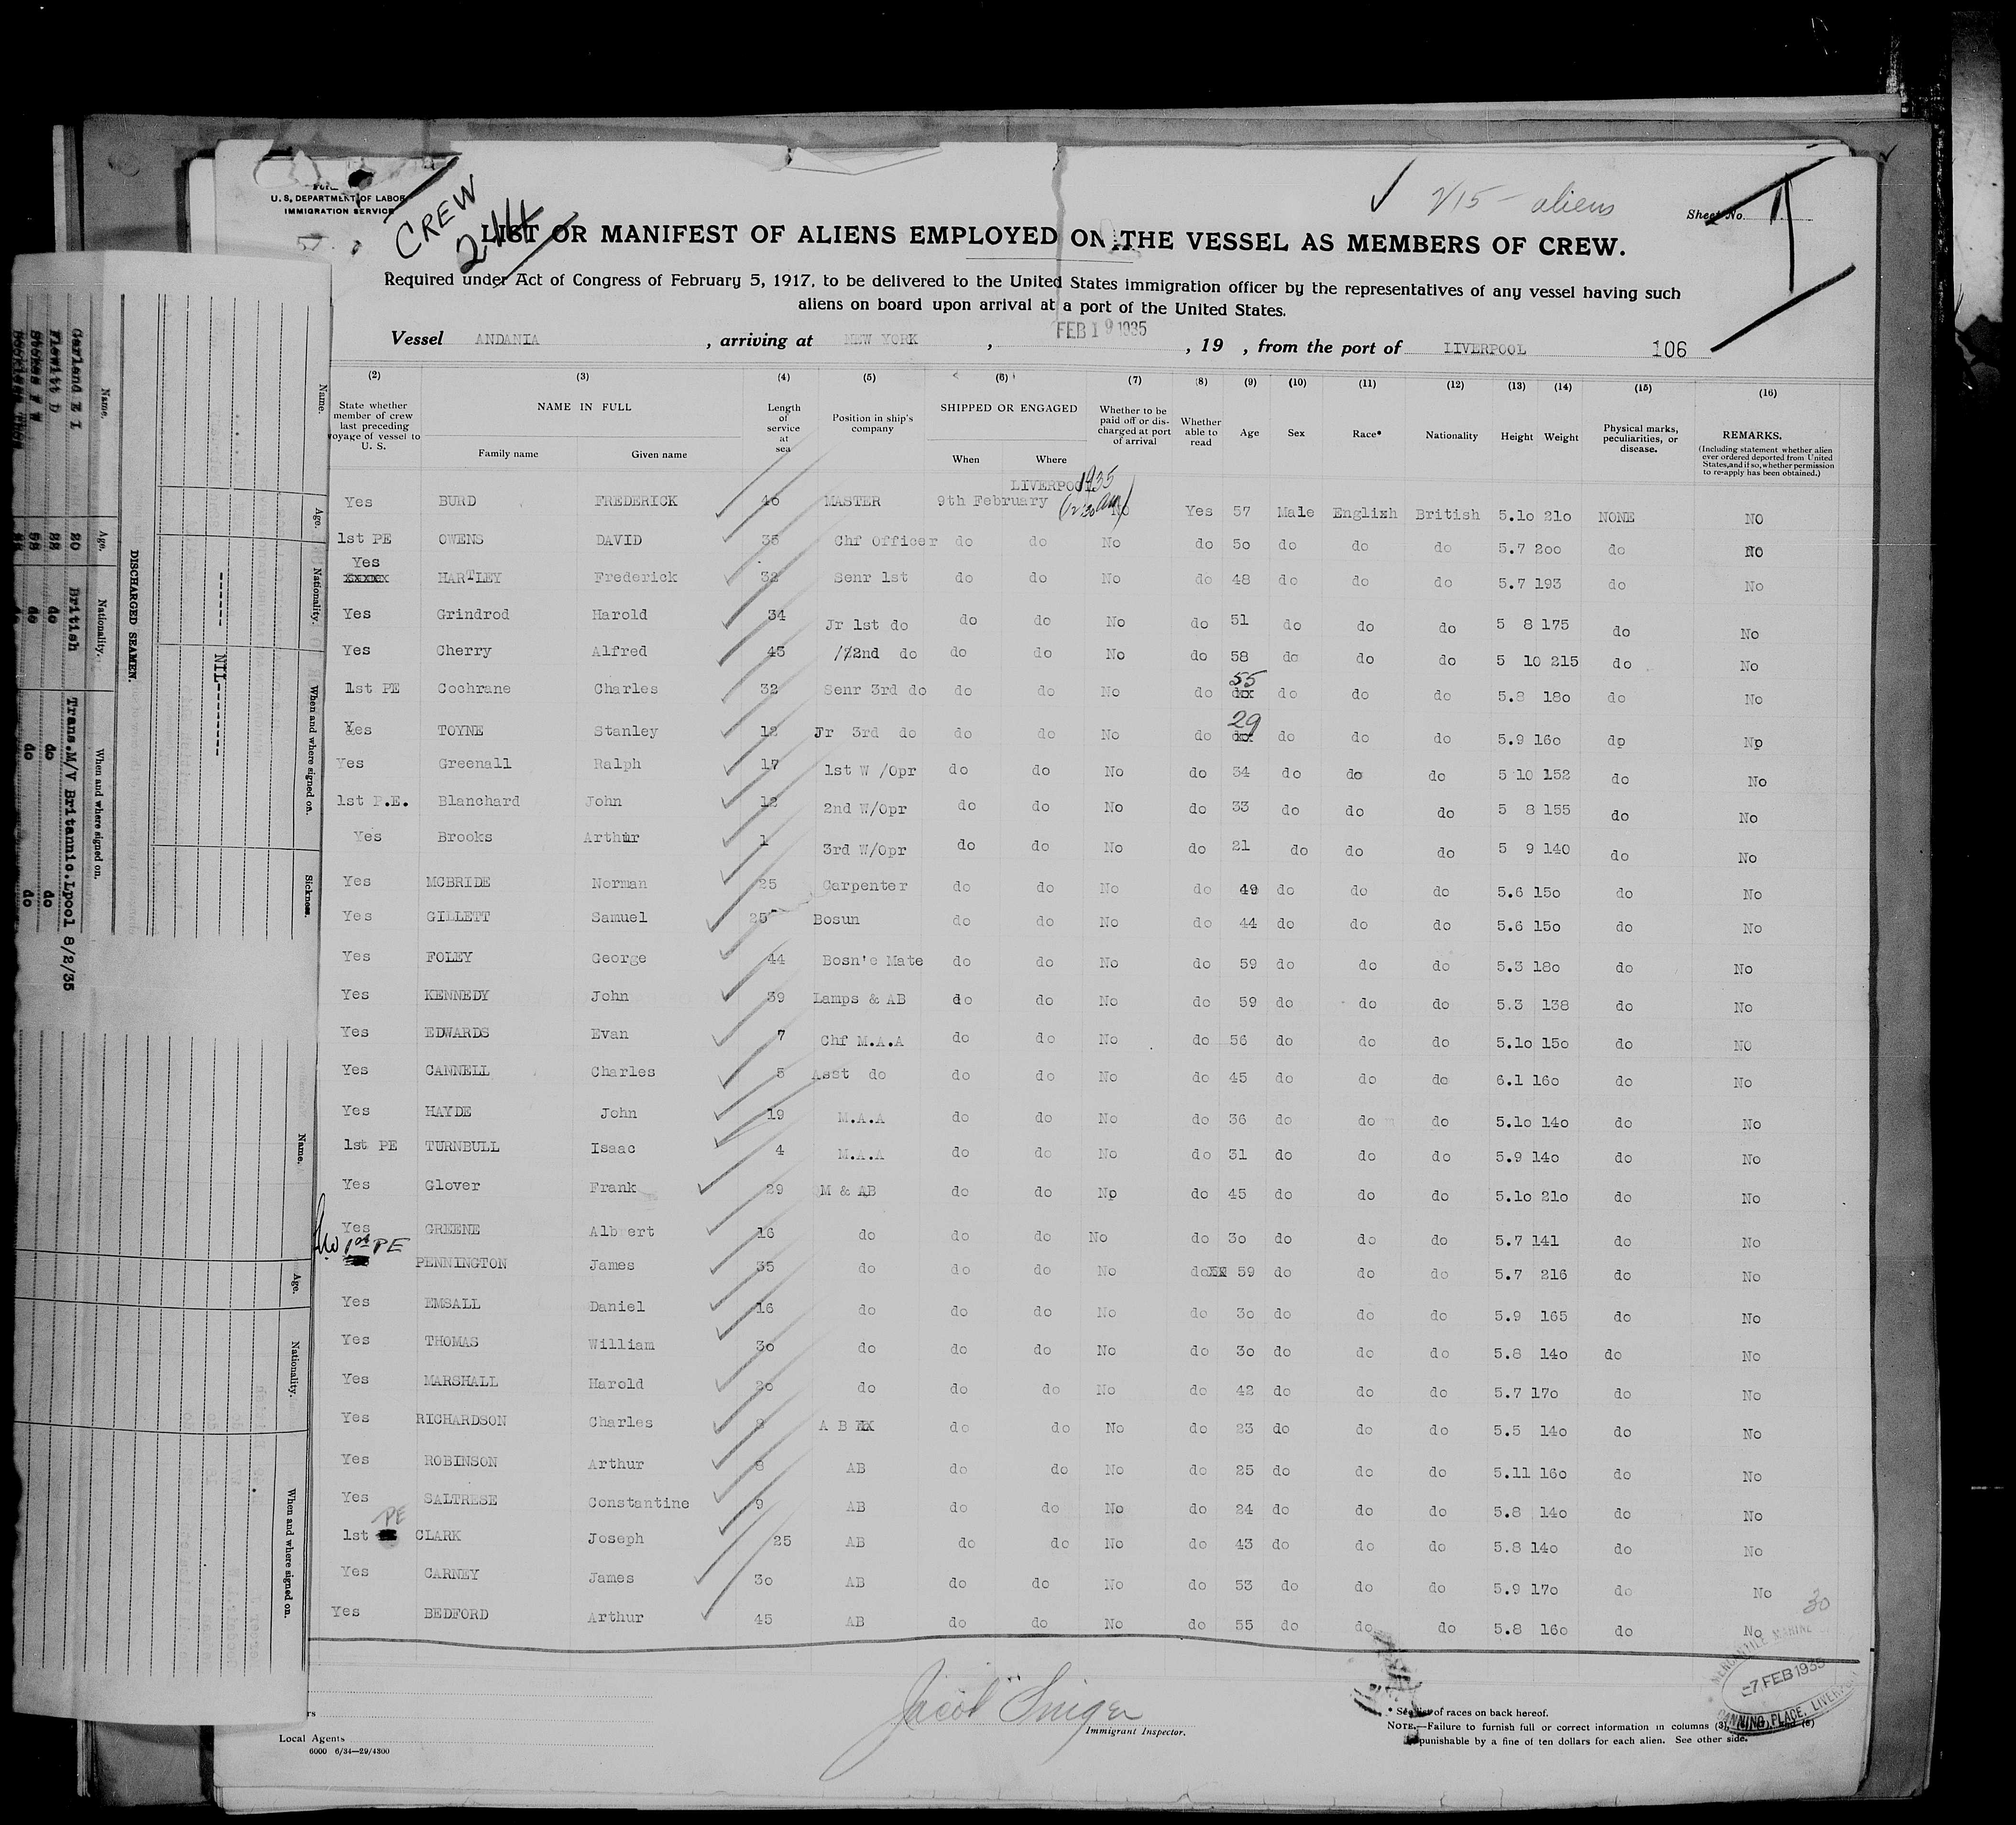 U. S. DEPARTMENT OF LABOR
IMMIGRATION SERVICE
CREW
244
✓ 215 - aliens
Sheet No. 1
LIST OR MANIFEST OF ALIENS EMPLOYED ON THE VESSEL AS MEMBERS OF CREW.
Required under Act of Congress of February 5, 1917, to be delivered to the United States immigration officer by the representatives of any vessel having such
aliens on board upon arrival at a port of the United States.
Vessel ANDANIA , arriving at NEW YORK , FEB 19 1935 , 19 , from the port of LIVERPOOL 106
(2) (3) (4) (5) (6) (7) (8) (9) (10) (11) (12) (13) (14) (15) (16)
State whether member of crew last preceding voyage of vessel to U. S.
NAME IN FULL
Family name Given name
Length of service at sea
Position in ship's company
SHIPPED OR ENGAGED
When Where
Whether to be paid off or discharged at port of arrival
Whether able to read
Age Sex Race* Nationality Height Weight
Physical marks, peculiarities, or disease.
REMARKS.
(Including statement whether alien ever ordered deported from United States, and if so, whether permission to re-apply has been obtained.)
LIVERPOOL 1935
Yes BURD FREDERICK 46 MASTER 9th February No Yes 57 Male English British 5.10 210 NONE NO
1st PE OWENS DAVID 35 Chf Officer do do No do 50 do do do 5.7 200 do NO
Yes HARTLEY Frederick 32 Senr 1st do do No do 48 do do do 5.7 193 do No
Yes Grindrod Harold 34 Jr 1st do do do No do 51 do do do 5 8 175 do No
Yes Cherry Alfred 43 2nd do do do No do 58 do do do 5 10 215 do No
1st PE Cochrane Charles 32 Senr 3rd do do do No do 55 do do do 5.8 180 do No
Yes TOYNE Stanley 12 Jr 3rd do do do No do 29 do do do 5.9 160 do No
Yes Greenall Ralph 17 1st W /Opr do do No do 34 do do do 5 10 152 do No
1st P.E. Blanchard John 12 2nd W/Opr do do No do 33 do do do 5 8 155 do No
Yes Brooks Arthur 1 3rd W/Opr do do No do 21 do do do 5 9 140 do No
Yes MCBRIDE Norman 25 Carpenter do do No do 49 do do do 5.6 150 do No
Yes GILLETT Samuel 25 Bosun do do No do 44 do do do 5.6 150 do No
Yes FOLEY George 44 Bosn's Mate do do No do 59 do do do 5.3 180 do No
Yes KENNEDY John 39 Lamps & AB do do No do 59 do do do 5.3 138 do No
Yes EDWARDS Evan 7 Chf M.A.A do do No do 56 do do do 5.10 150 do NO
Yes CANNELL Charles 5 Asst do do do No do 45 do do do 6.1 160 do No
Yes HAYDE John 19 M.A.A do do No do 36 do do do 5.10 140 do No
1st PE TURNBULL Isaac 4 M.A.A do do No do 31 do do do 5.9 140 do No
Yes Glover Frank 29 QM & AB do do No do 45 do do do 5.10 210 do No
Yes GREENE Albert 16 do do do No do 30 do do do 5.7 141 do No
No 1st PE PENNINGTON James 35 do do do No do 59 do do do 5.7 216 do No
Yes EMSALL Daniel 16 do do do No do 30 do do do 5.9 165 do No
Yes THOMAS William 30 do do do No do 30 do do do 5.8 140 do No
Yes MARSHALL Harold 20 do do do No do 42 do do do 5.7 170 do No
Yes RICHARDSON Charles 8 A B do do No do 23 do do do 5.5 140 do No
Yes ROBINSON Arthur 8 AB do do No do 25 do do do 5.11 160 do No
Yes SALTRESE Constantine 9 AB do do No do 24 do do do 5.8 140 do No
1st PE CLARK Joseph 25 AB do do No do 43 do do do 5.8 140 do No
Yes CARNEY James 30 AB do do No do 53 do do do 5.9 170 do No
Yes BEDFORD Arthur 45 AB do do No do 55 do do do 5.8 160 do No
30
Jacob Singer
Immigrant Inspector.
Local Agents
6000 6/34—29/4300
* See list of races on back hereof.
NOTE.—Failure to furnish full or correct information in columns (3),
punishable by a fine of ten dollars for each alien. See other side.
MERCANTILE MARINE
-7 FEB 1935
CANNING PLACE, LIVERPOOL
DISCHARGED SEAMEN.
Name. Age. Nationality. When and where signed on.
Garland E I 20 British Trans.M/V Britannic.Lpool 8/2/35
Flewitt D 22 do do do
Stokes F W do do do
Name. Age. Nationality. When and where signed on. Sickness.
------ NIL----------
Name. Age. Nationality. When and where signed on.